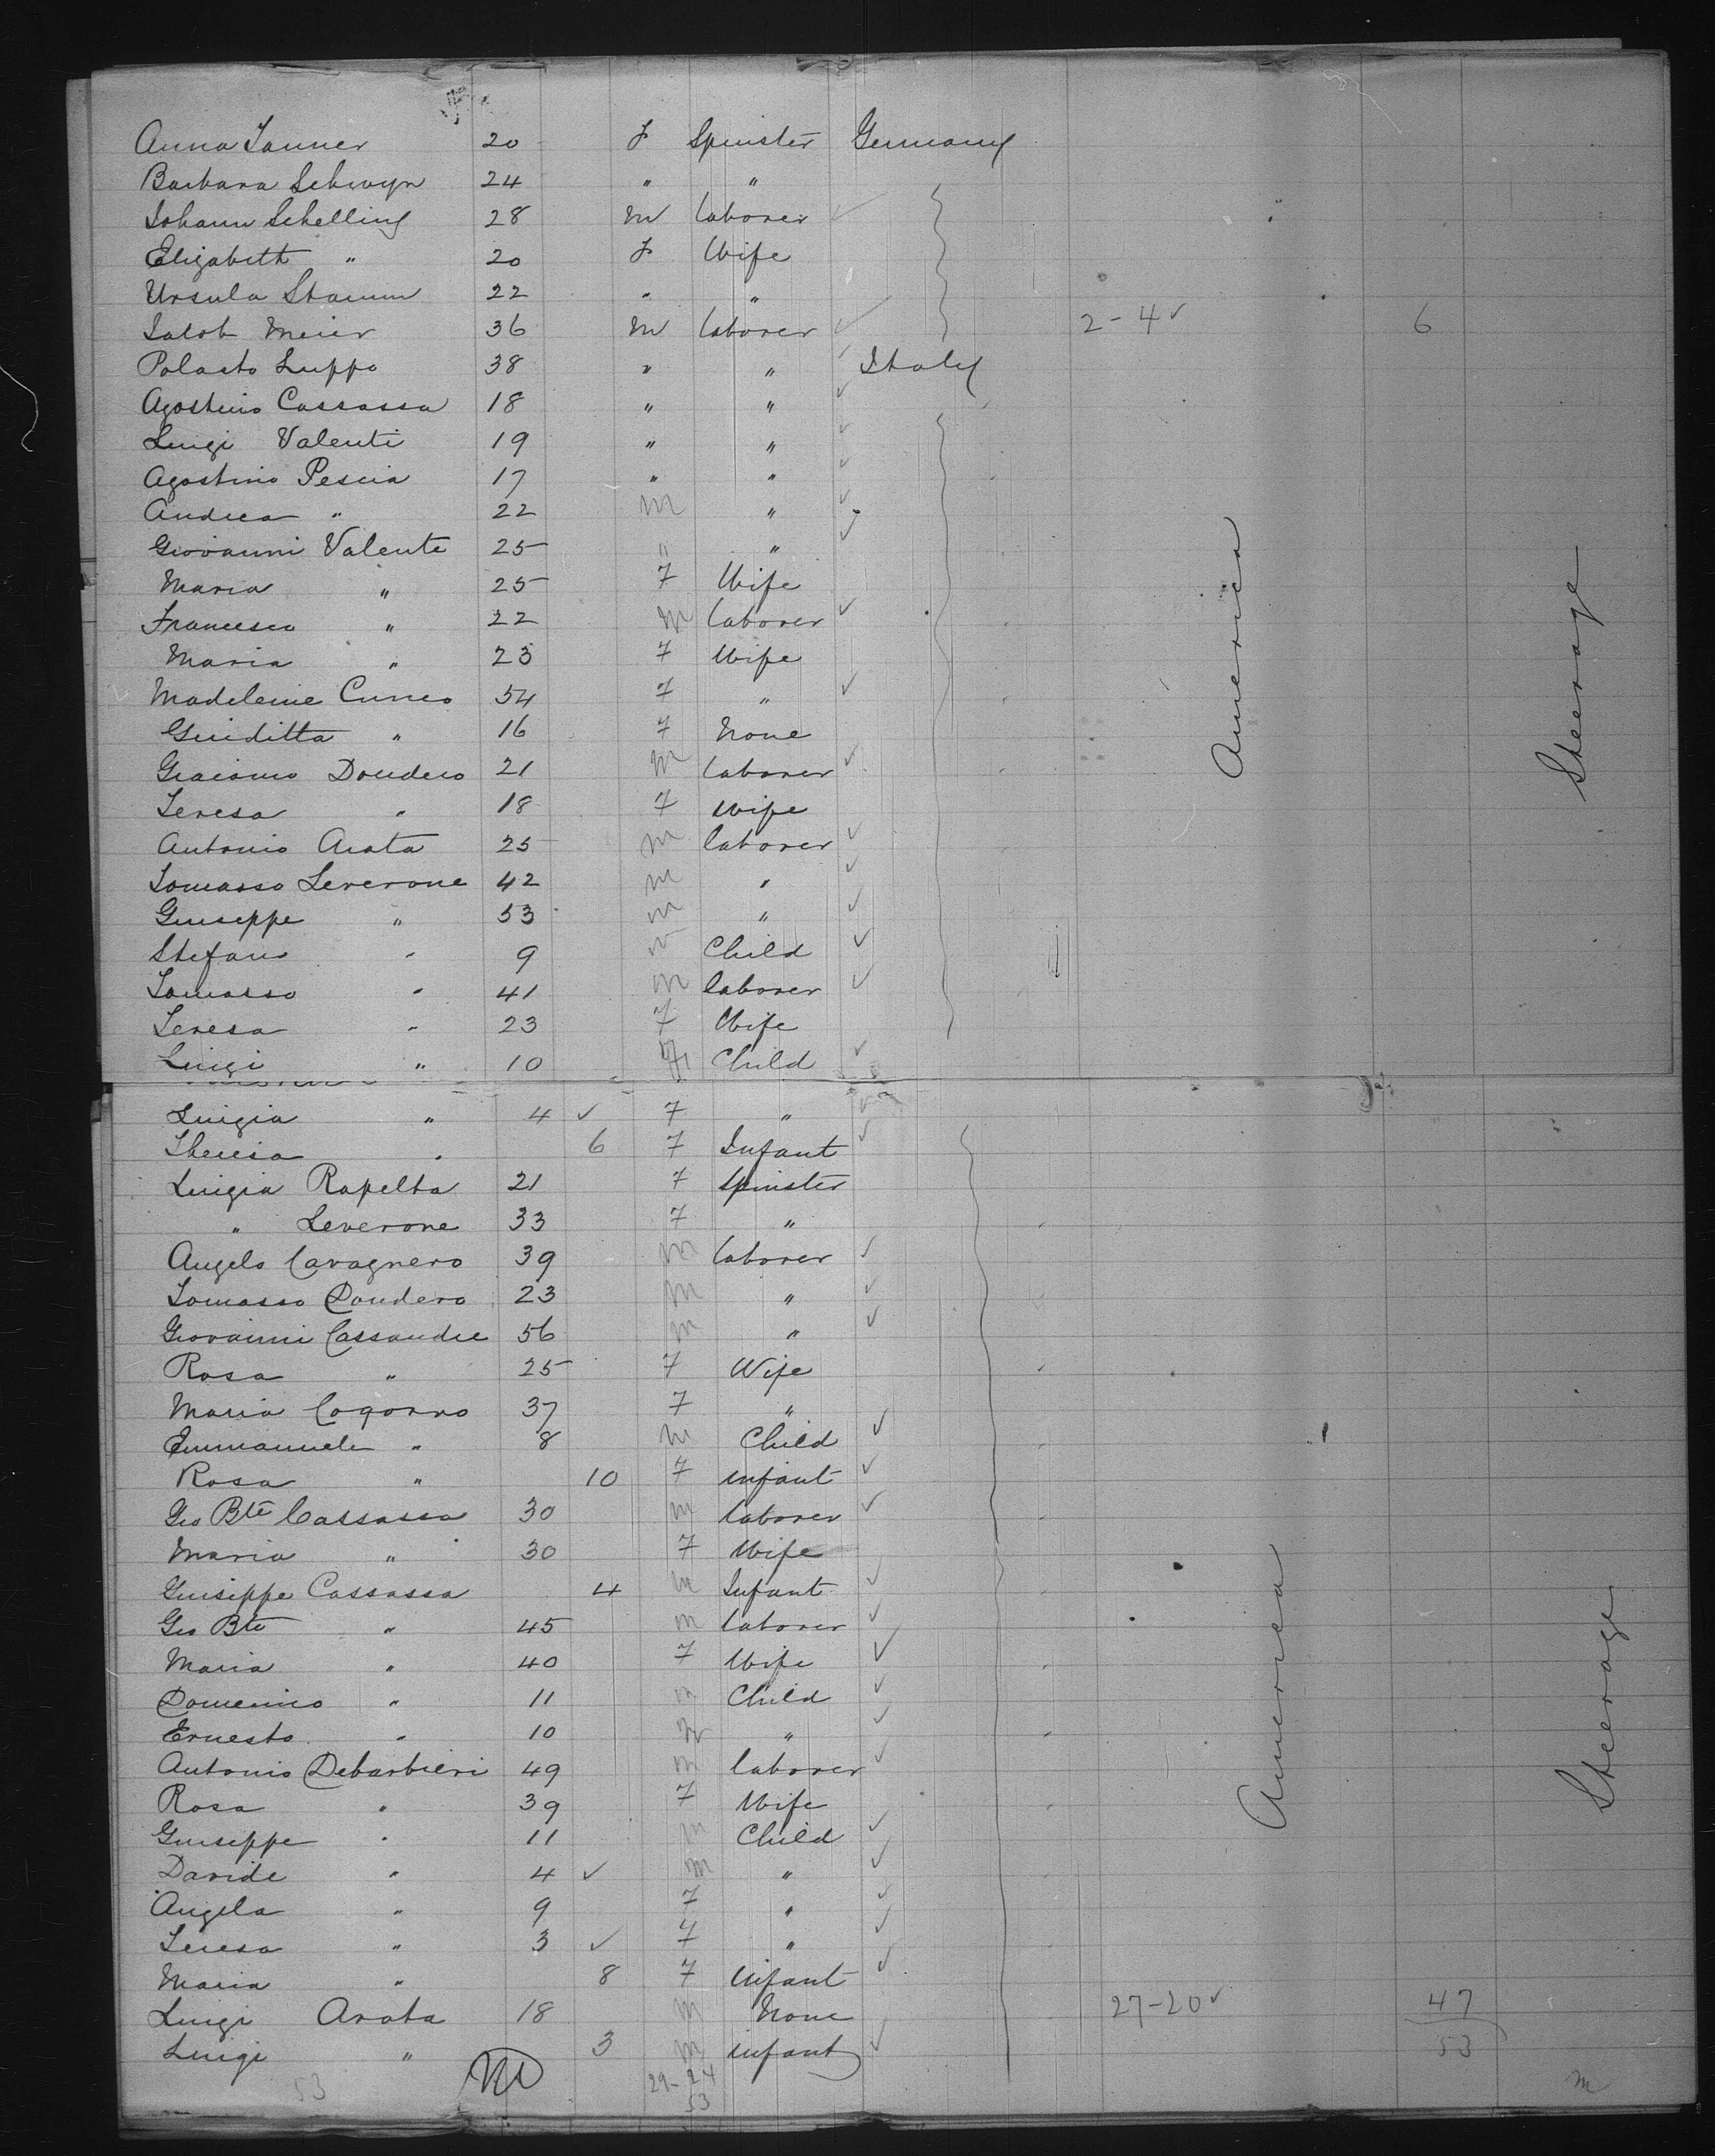 Anna Tanner 20 F Spinster Germany
Barbara Schwyn 24 " "
Johann Schelling 28 M laborer ✓
Elizabeth " 20 F Wife
Ursula Stamm 22 " "
Jacob Meier 36 M laborer ✓ 2-4 ✓ 6
Polasto Luppo 38 " " ✓ Italy
Agostino Cassassa 18 " " ✓
Luigi Valenti 19 " " ✓
Agostino Pescia 17 " " ✓
Andrea " 22 M " ✓
Giovanni Valente 25 " " ✓
Maria " 25 F Wife
Francesco " 22 M laborer ✓
Maria " 23 F Wife
Madeleine Cuneo 54 F " ✓
Giuditta " 16 F None
Giacomo Dondero 21 M laborer ✓
Teresa " 18 F Wife
Antonio Arata 25 M laborer ✓
Tomasso Leverone 42 M " ✓
Giuseppe " 53 M " ✓
Stefano " 9 M Child ✓
Tomasso " 41 M laborer ✓
Teresa " 23 F Wife
Luigi " 10 M Child ✓
America
Steerage
Luigia " 4 ✓ F " ✓
Theresa " 6 F Infant ✓
Luigia Rapelta 21 F Spinster
" Leverone 33 F "
Angelo Cavagnero 39 M laborer ✓
Tomasso Dondero 23 M " ✓
Giovanni Cassandre 56 M " ✓
Rosa " 25 F Wife
Maria Cogorno 37 F "
Emmanuele " 8 M Child ✓
Rosa " 10 F infant ✓
Gio Bte Cassassa 30 M laborer ✓
Maria " 30 F Wife
Guiseppe Cassassa 4 M Infant ✓
Gio Bte " 45 M laborer ✓
Maria " 40 F Wife ✓
Domenico " 11 M Child ✓
Ernesto " 10 M " ✓
Antonio Debarbieri 49 M laborer ✓
Rosa " 39 F Wife
Guiseppe " 11 M Child ✓
Davide " 4 ✓ M " ✓
Angela " 9 F " ✓
Teresa " 3 ✓ F " ✓
Maria " 8 F infant ✓
Luigi Arata 18 M None 27-20 ✓ 47
Luigi " 3 M infant ✓ 53
America
Steerage
53 M 29-24 M
53